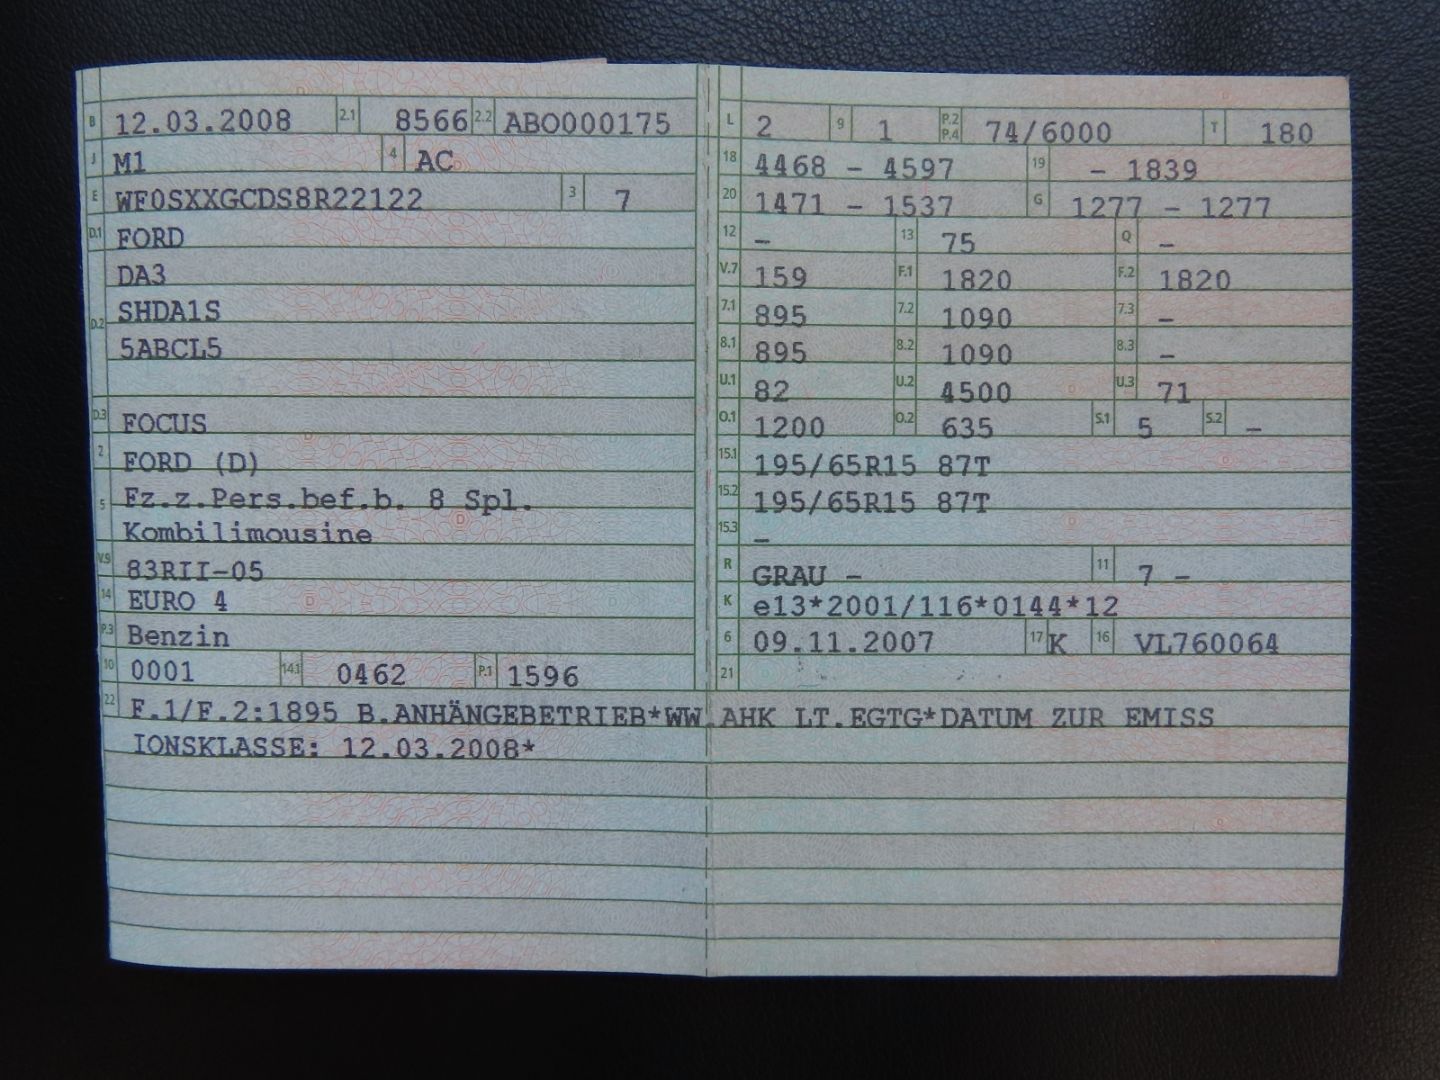 B 12.03.2008 2.1 8566 2.2 ABO000175
J M1 4 AC
E WF0SXXGCDS8R22122 3 7
D.1 FORD
DA3
SHDA1S
D.2
5ABCL5
D.3 FOCUS
2 FORD (D)
5 Fz.z.Pers.bef.b. 8 Spl.
Kombilimousine
V.9 83RII-05
14 EURO 4
P.3 Benzin
10 0001 14.1 0462 P.1 1596
L 2 9 1 P.2 P.4 74/6000 T 180
18 4468 - 4597 19 - 1839
20 1471 - 1537 G 1277 - 1277
12 - 13 75 Q -
V.7 159 F.1 1820 F.2 1820
7.1 895 7.2 1090 7.3 -
8.1 895 8.2 1090 8.3 -
U.1 82 U.2 4500 U.3 71
O.1 1200 O.2 635 S.1 5 S.2 -
15.1 195/65R15 87T
15.2 195/65R15 87T
15.3 -
R GRAU - 11 7 -
K e13*2001/116*0144*12
6 09.11.2007 17 K 16 VL760064
21
22 F.1/F.2:1895 B.ANHÄNGEBETRIEB*WW.AHK LT.EGTG*DATUM ZUR EMISS
IONSKLASSE: 12.03.2008*